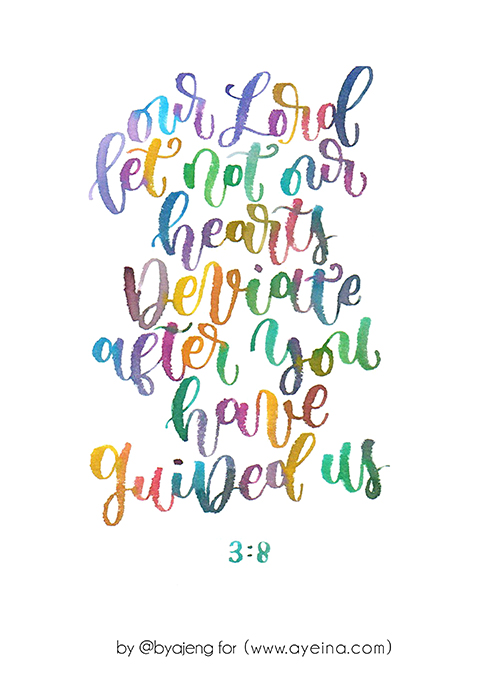 our Lord
let not our
hearts
Deviate
after you
have
guided us
3:8
by @byajeng for (www.ayeina.com)